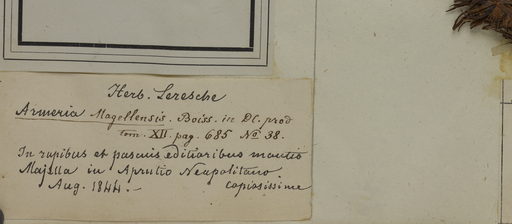 Herb. Leresche
Armeria Magellensis. Boiss. in DC. prod
tom. XII. pag. 685 No 38.
In rupibus et pascuis editioribus montis
Majella in Aprutio Neapolitano.
Aug. 1844.- copiosissime